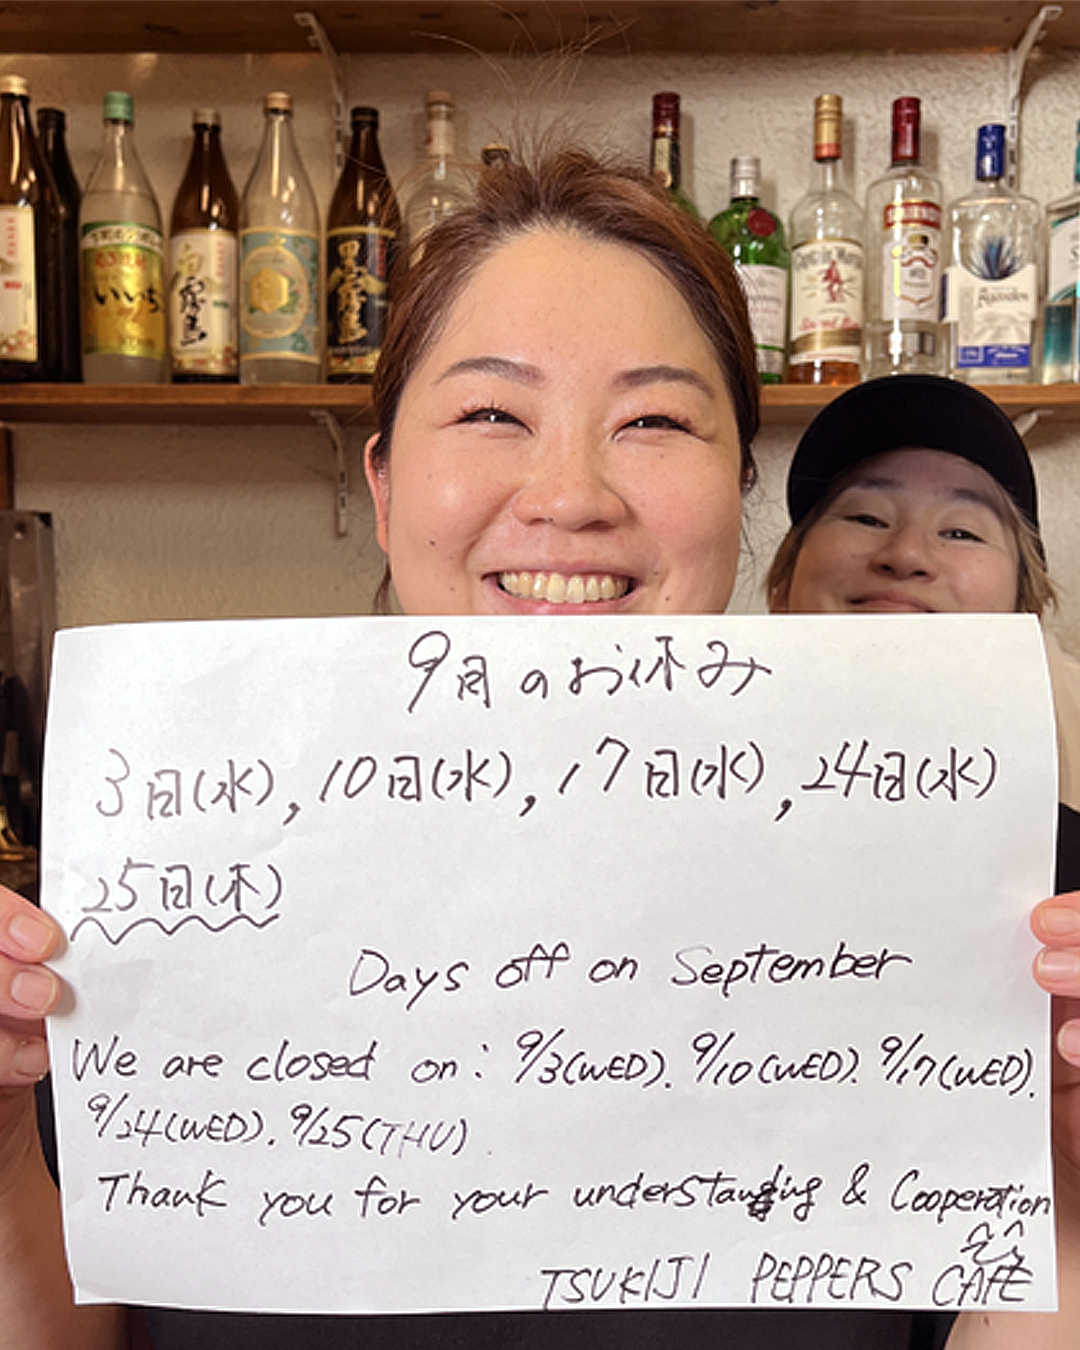 いいち
白霧島
黒霧島
SMIRNOFF
9月のお休み
3日(水), 10日(水), 17日(水), 24日(水)
25日(木)
Days off on September
We are closed on: 9/3(WED). 9/10(WED). 9/17(WED).
9/24(WED). 9/25(THU).
Thank you for your understanding & Cooperation
TSUKIJI PEPPERS CAFE